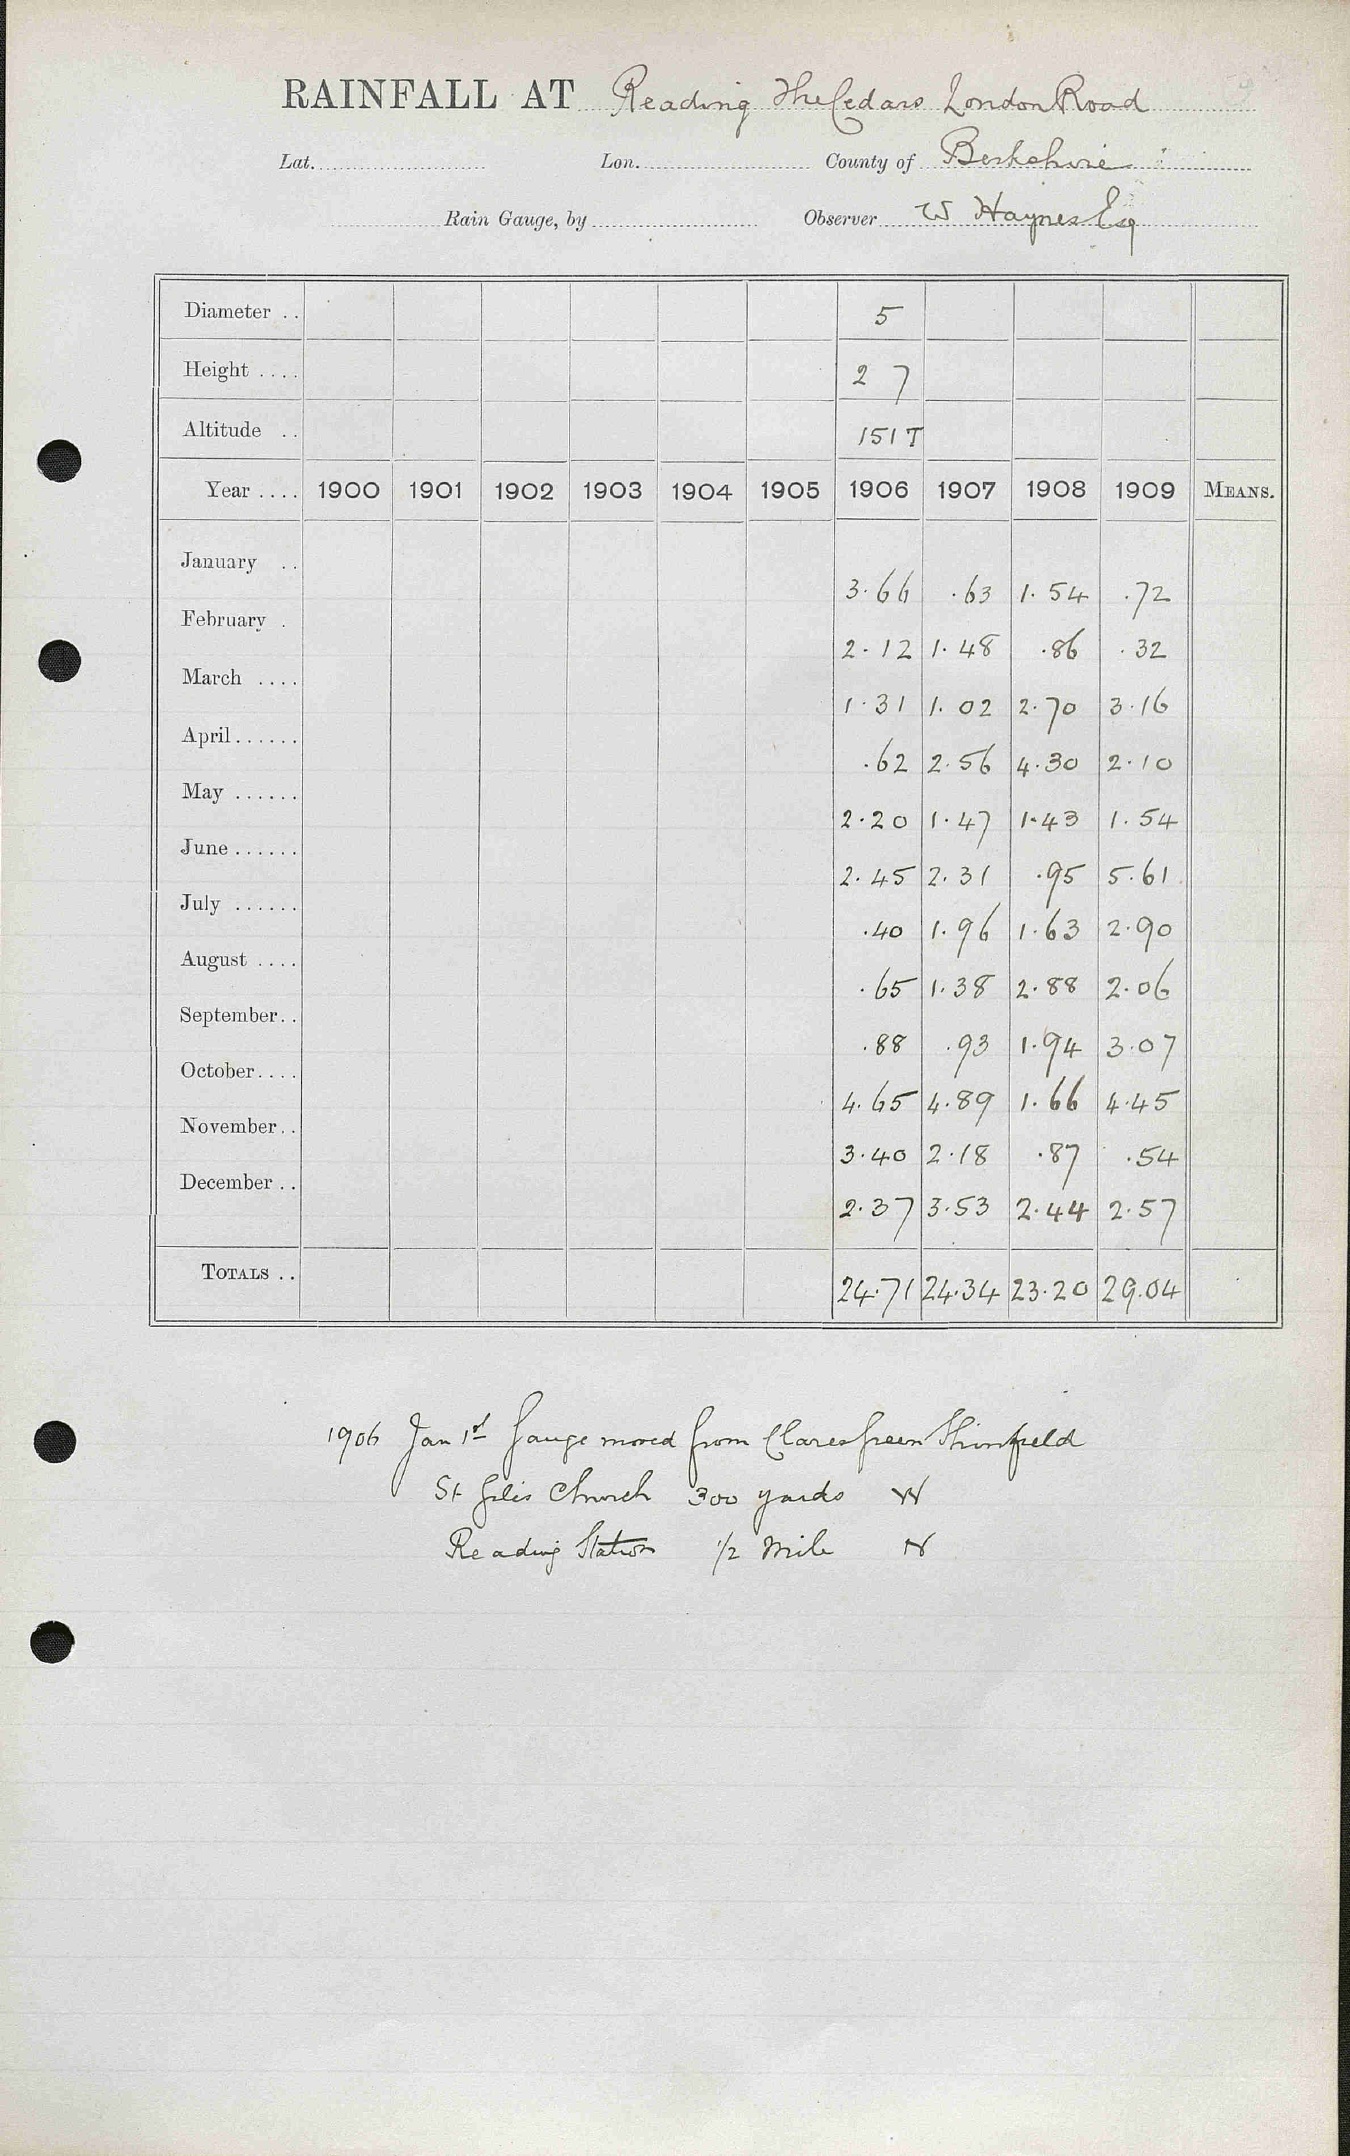 RAINFALL AT Reading The Cedars London Road
Lat. Lon. County of Berkshire
Rain Gauge, by Observer W Haynes Esq
Diameter .. 5
Height .... 2 7
Altitude .. 151 T
Year .... 1900 1901 1902 1903 1904 1905 1906 1907 1908 1909 MEANS.
January .. 3.66 .63 1.54 .72
February . 2.12 1.48 .86 .32
March .... 1.31 1.02 2.70 3.16
April...... .62 2.56 4.30 2.10
May ...... 2.20 1.47 1.43 1.54
June...... 2.45 2.31 .95 5.61
July ...... .40 1.96 1.63 2.90
August .... .65 1.38 2.88 2.06
September.. .88 .93 1.94 3.07
October.... 4.65 4.89 1.66 4.45
November.. 3.40 2.18 .87 .54
December .. 2.37 3.53 2.44 2.57
TOTALS .. 24.71 24.34 23.20 29.04
1906 Jan 1st Gauge moved from Clares Green Shinfield
St Giles Church 300 yards W
Reading Station 1/2 Mile N